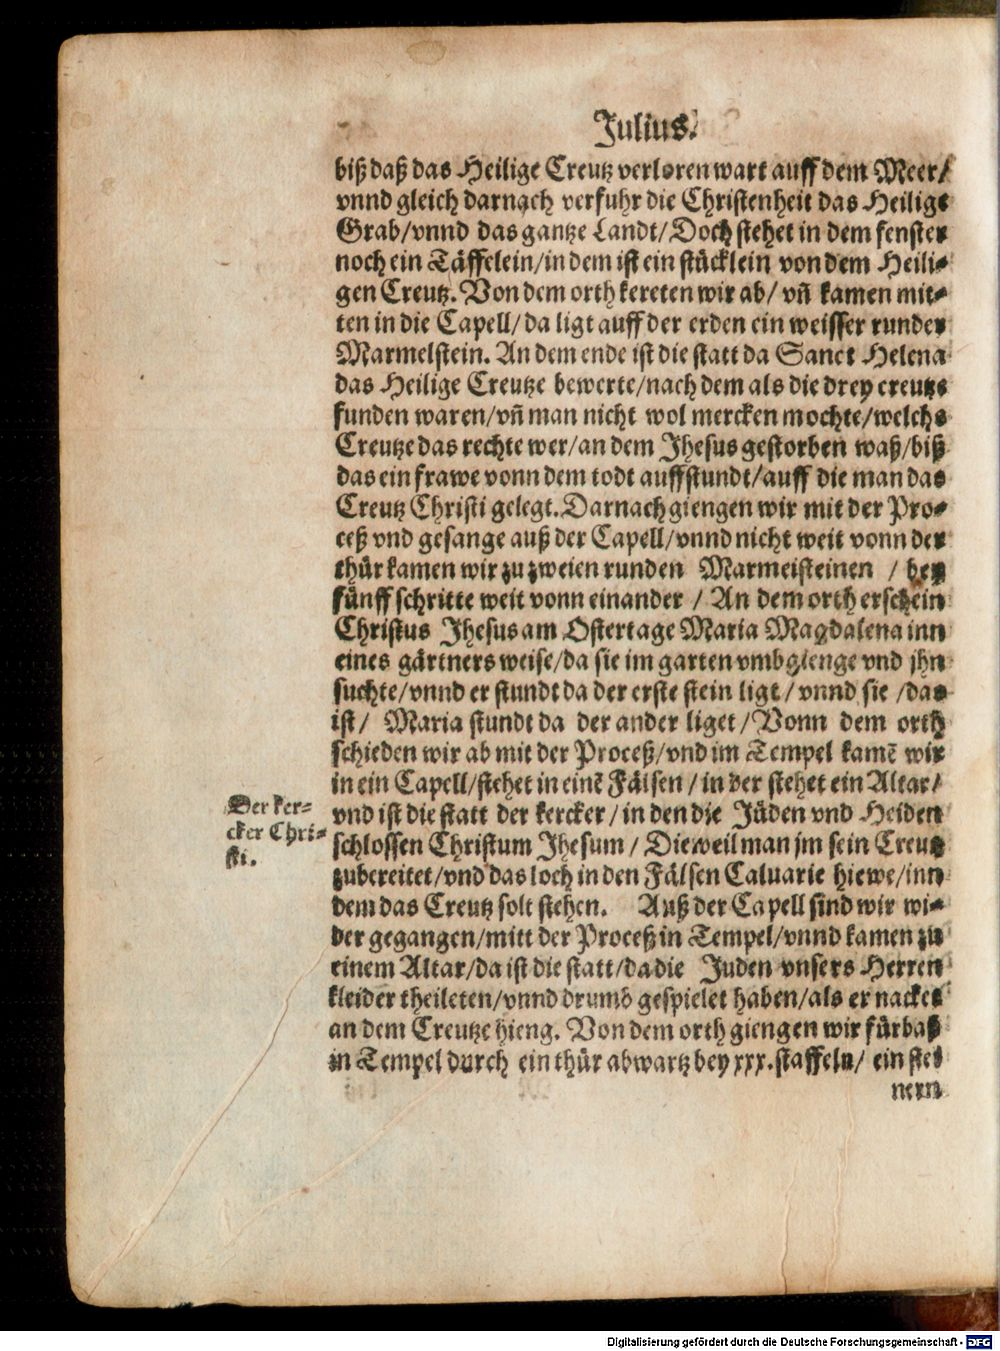 Julius.
biß daß das Heilige Creutz verloren wart auff dem Meer/
vnnd gleich darnach verfuhr die Christenheit das Heilige
Grab/vnnd das gantze Landt/Doch stehet in dem fenster
noch ein Täffelein/in dem ist ein stücklein von dem Heili-
gen Creutz. Von dem orth kereten wir ab/ vñ kamen mit-
ten in die Capell/ da ligt auff der erden ein weisser runder
Marmelstein. An dem ende ist die statt da Sanct Helena
das Heilige Creutze bewerte/nach dem als die drey creutze
funden waren/vñ man nicht wol mercken mochte/welchs
Creutze das rechte wer/an dem Jhesus gestorben waß/biß
das ein frawe vonn dem todt auffstundt/auff die man das
Creutz Christi gelegt. Darnach giengen wir mit der Pro-
ceß vnd gesange auß der Capell/vnnd nicht weit vonn der
thür kamen wir zu zweien runden Marmeisteinen / bey
fünff schritte weit vonn einander / An dem orth erschein
Christus Jhesus am Ostertage Maria Magdalena inn
eines gärtners weise/da sie im garten vmbgienge vnd jhn
suchte/vnnd er stundt da der erste stein ligt/ vnnd sie /das
ist/ Maria stundt da der ander liget/Vonn dem orth
schieden wir ab mit der Proceß/vnd im Tempel kamē wir
in ein Capell/stehet in einē Fälsen / in der stehet ein Altar/
vnd ist die statt der kercker/ in den die Jüden vnd Heiden
schlossen Christum Jhesum / Dieweil man jm sein Creutz
zubereitet/vnd das loch in den Fälsen Caluarie hiewe/inn
dem das Creutz solt stehen. Auß der Capell sind wir wi-
der gegangen/mitt der Proceß in Tempel/vnnd kamen zu
einem Altar/da ist die statt/da die Juden vnsers Herren
kleider theileten/vnnd drumb gespielet haben/als er nacket
an dem Creutze hieng. Von dem orth giengen wir fürbaß
in Tempel durch ein thür abwartz bey xxx. staffeln/ ein stei
nern
Der ker-
cker Chri-
sti.
Digitalisierung gefördert durch die Deutsche Forschungsgemeinschaft - DFG